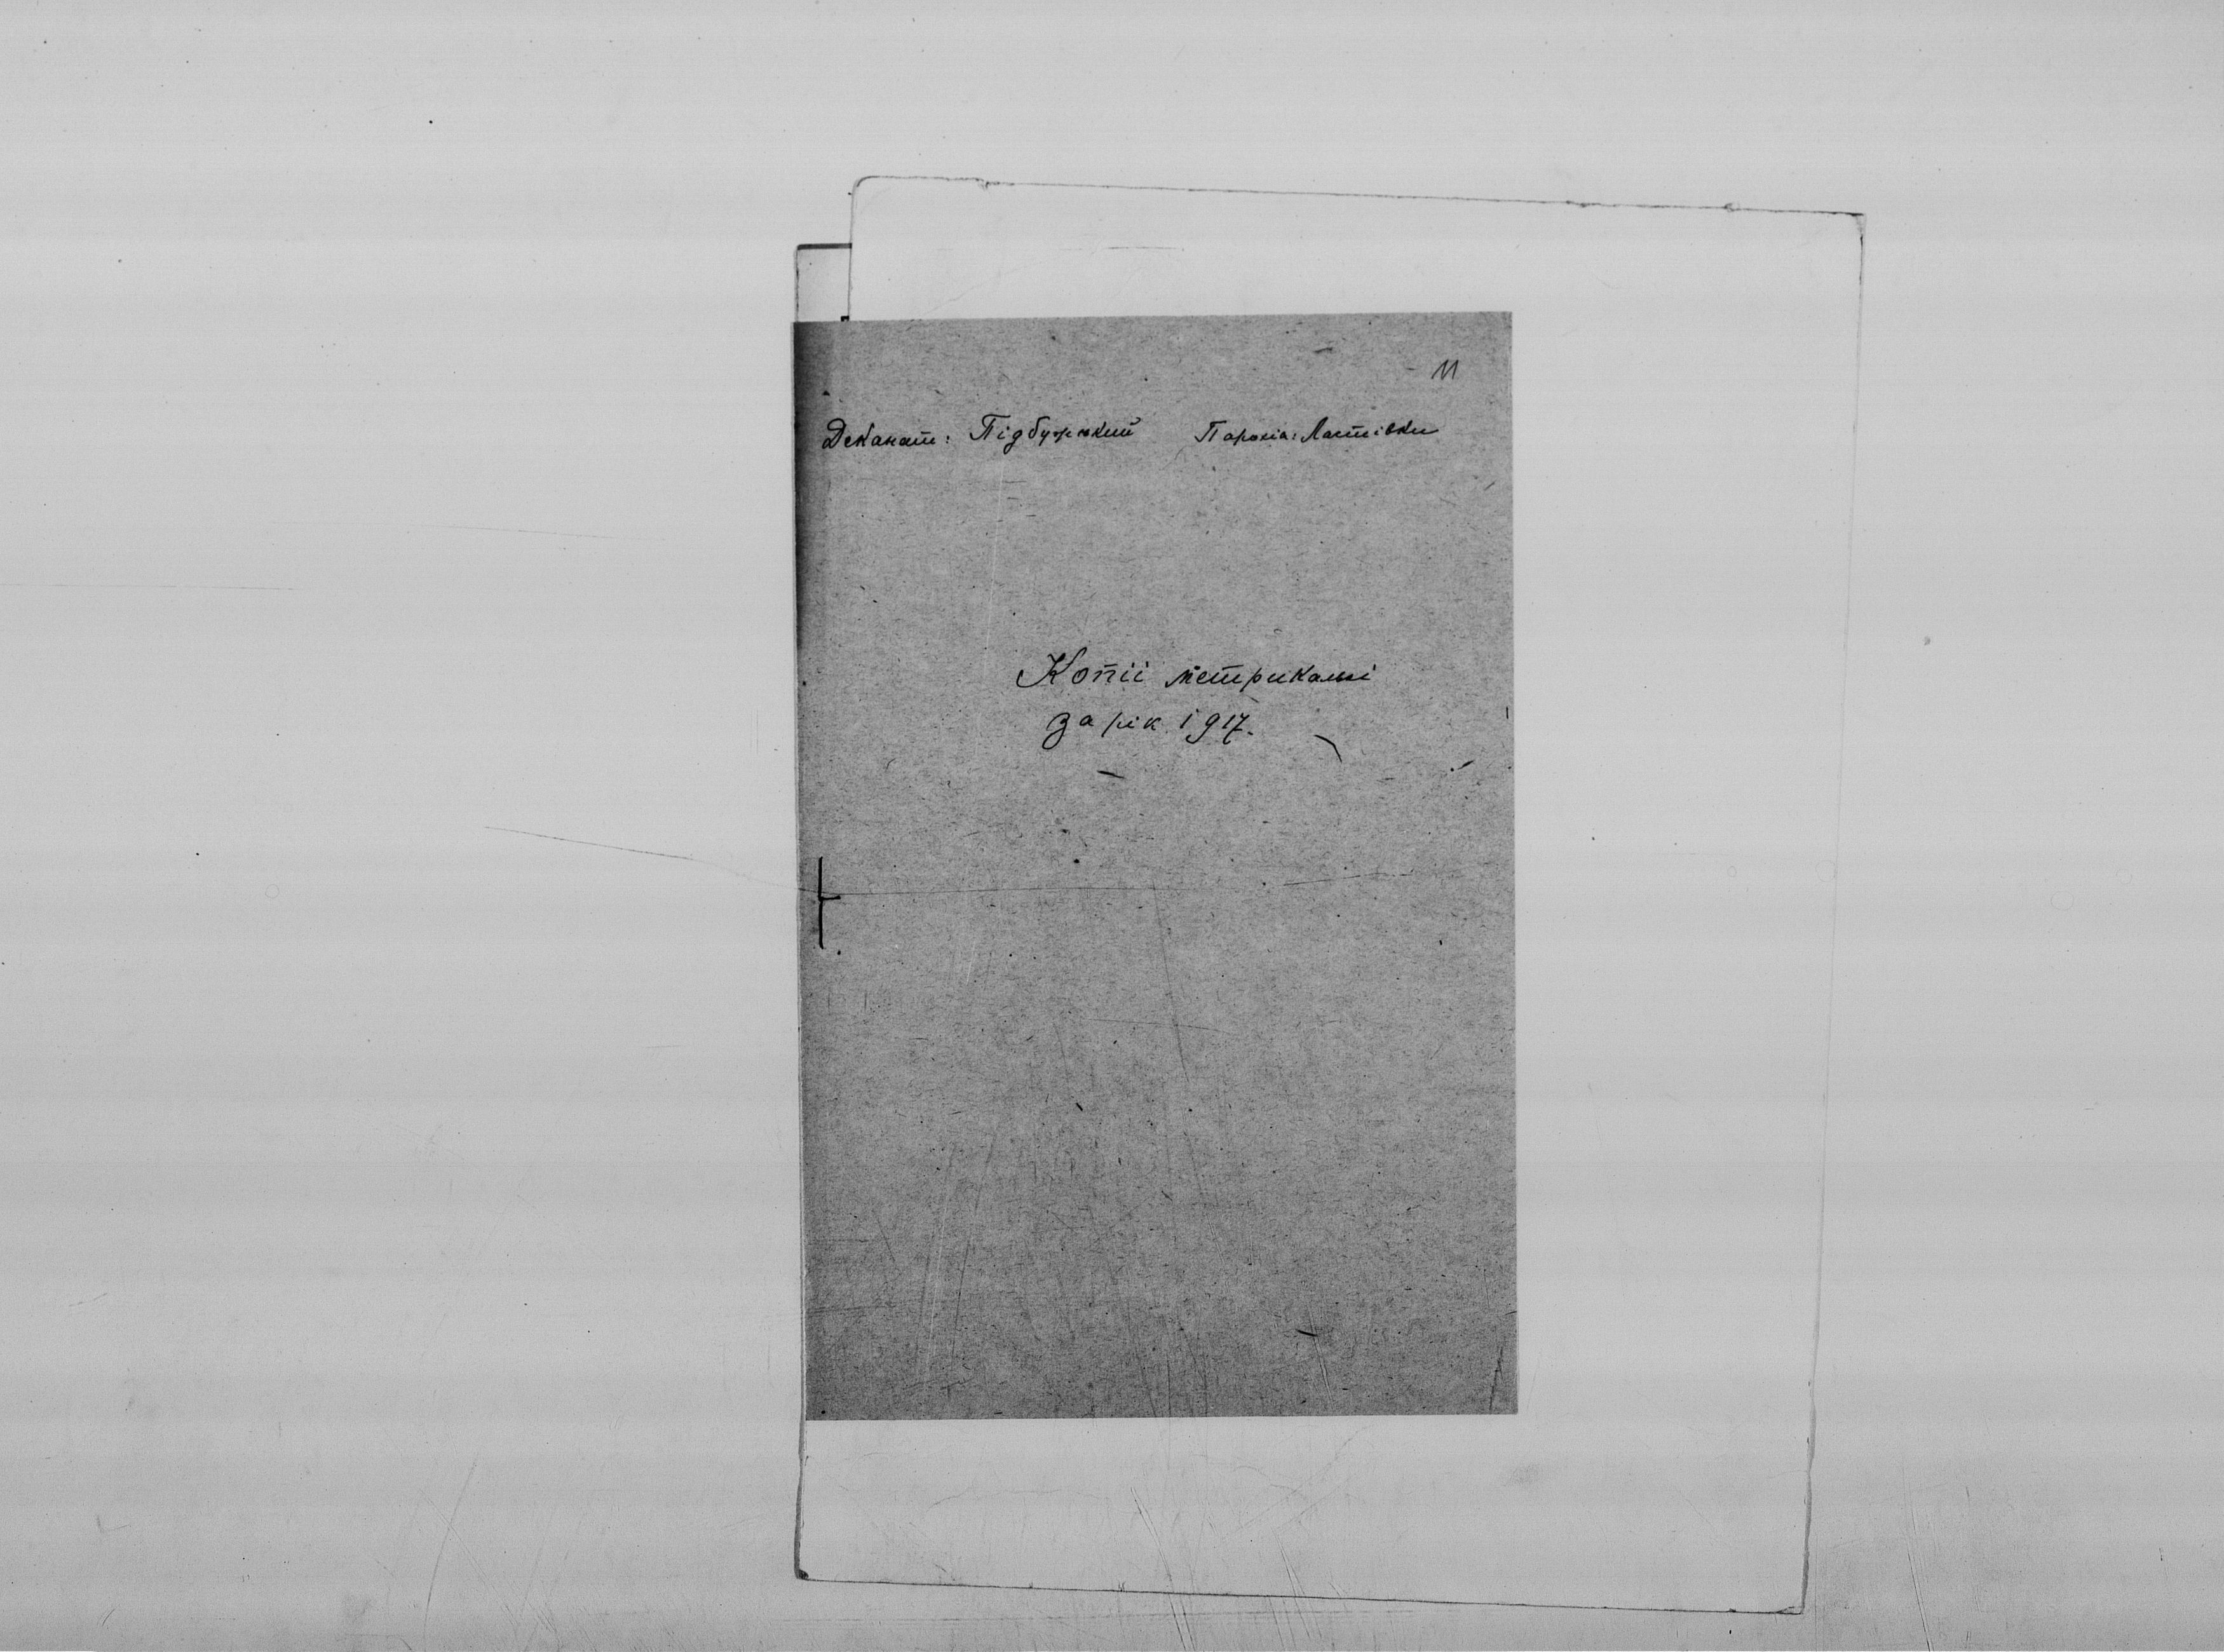 11
Деканат: Підбужский Парохіа: Ластівки
Копіі метрикальні
За рік 1917.